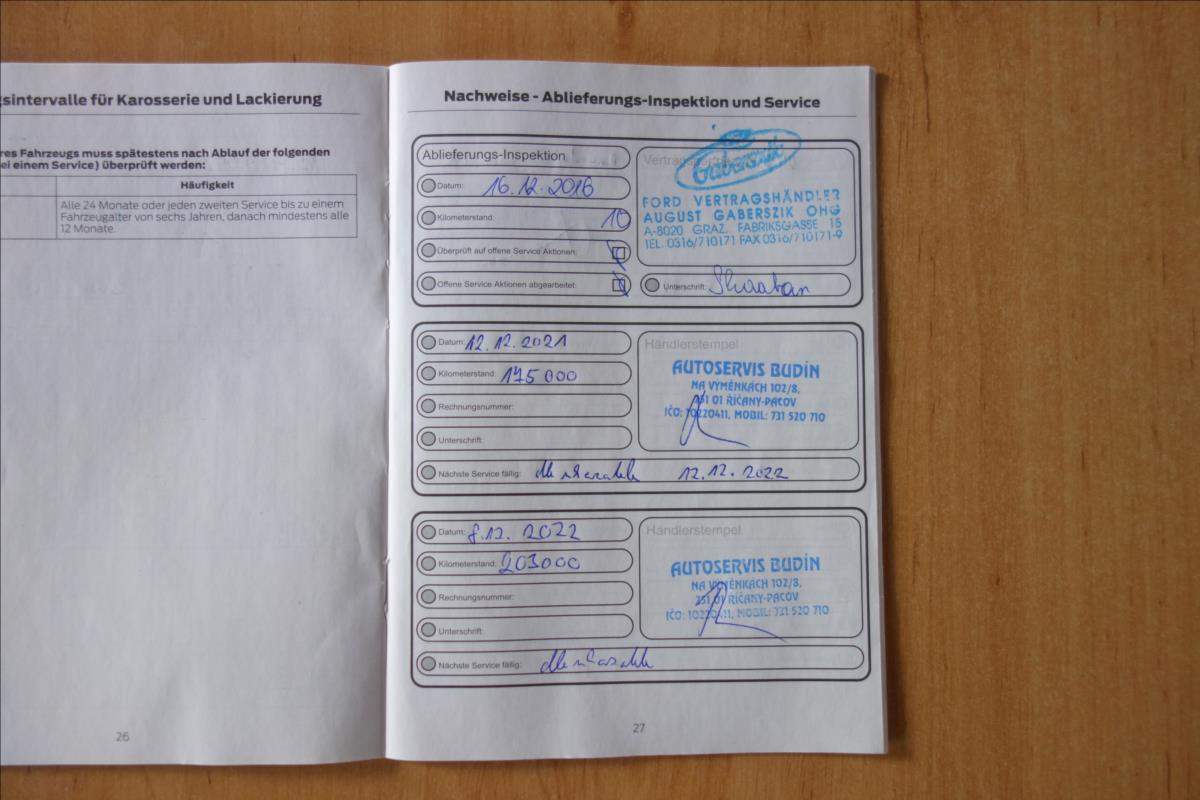 gsintervalle für Karosserie und Lackierung
res Fahrzeugs muss spätestens nach Ablauf der folgenden
ei einem Service) überprüft werden:
Häufigkeit
Alle 24 Monate oder jeden zweiten Service bis zu einem
Fahrzeugalter von sechs Jahren, danach mindestens alle
12 Monate.
26
Nachweise - Ablieferungs-Inspektion und Service
Ablieferungs-Inspektion
Datum: 16.12.2016
Kilometerstand: 10
Überprüft auf offene Service Aktionen:
Offene Service Aktionen abgearbeitet:
Gaberszik
FORD VERTRAGSHÄNDLER
AUGUST GABERSZIK OHG
A-8020 GRAZ, FABRIKSGASSE 15
TEL. 0316/710171 FAX 0316/710171-9
Unterschrift:
Datum: 12.12.2021
Kilometerstand: 175 000
Rechnungsnummer:
Unterschrift:
Nächste Service fällig: 12.12.2022
Händlerstempel
AUTOSERVIS BUDÍN
NA VÝMĚNKÁCH 102/8,
251 01 ŘÍČANY-PACOV
IČO: 10220411, MOBIL: 731 520 710
Datum: 8.12. 2022
Kilometerstand: 203000
Rechnungsnummer:
Unterschrift:
Nächste Service fällig:
Händlerstempel
AUTOSERVIS BUDÍN
NA VÝMĚNKÁCH 102/8,
251 01 ŘÍČANY-PACOV
IČO: 10220411, MOBIL: 731 520 710
27